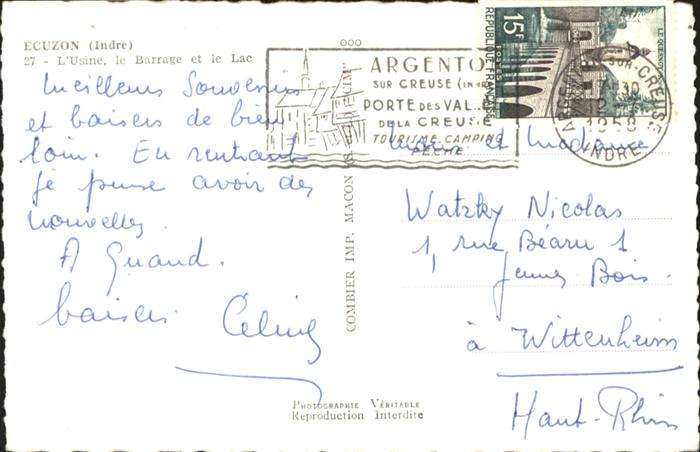 ECUZON (Indre)
27 - L'Usine, le Barrage et le Lac
Meilleurs Souvenirs
et baisers de bien
loin. En rentrant
je pense avoir des
nouvelles.
A Quand.
baisers
COMBIER IMP. MACON
ARGENTO
SUR CREUSE (IN
PORTE DES VAL
DE LA CREUSE
TOURISME.CAMPING
PÊCHE
15F
REPUBLIQUE FRANÇAISE
LE QUESNOY
SUR-CREUSE
30
1958
INDRE
Monsieur et Madame
Watzky Nicolas
1, rue Béarn 1
Bois.
à Wittenheim
Haut-Rhin
PHOTOGRAPHIE VÉRITABLE
Reproduction Interdite